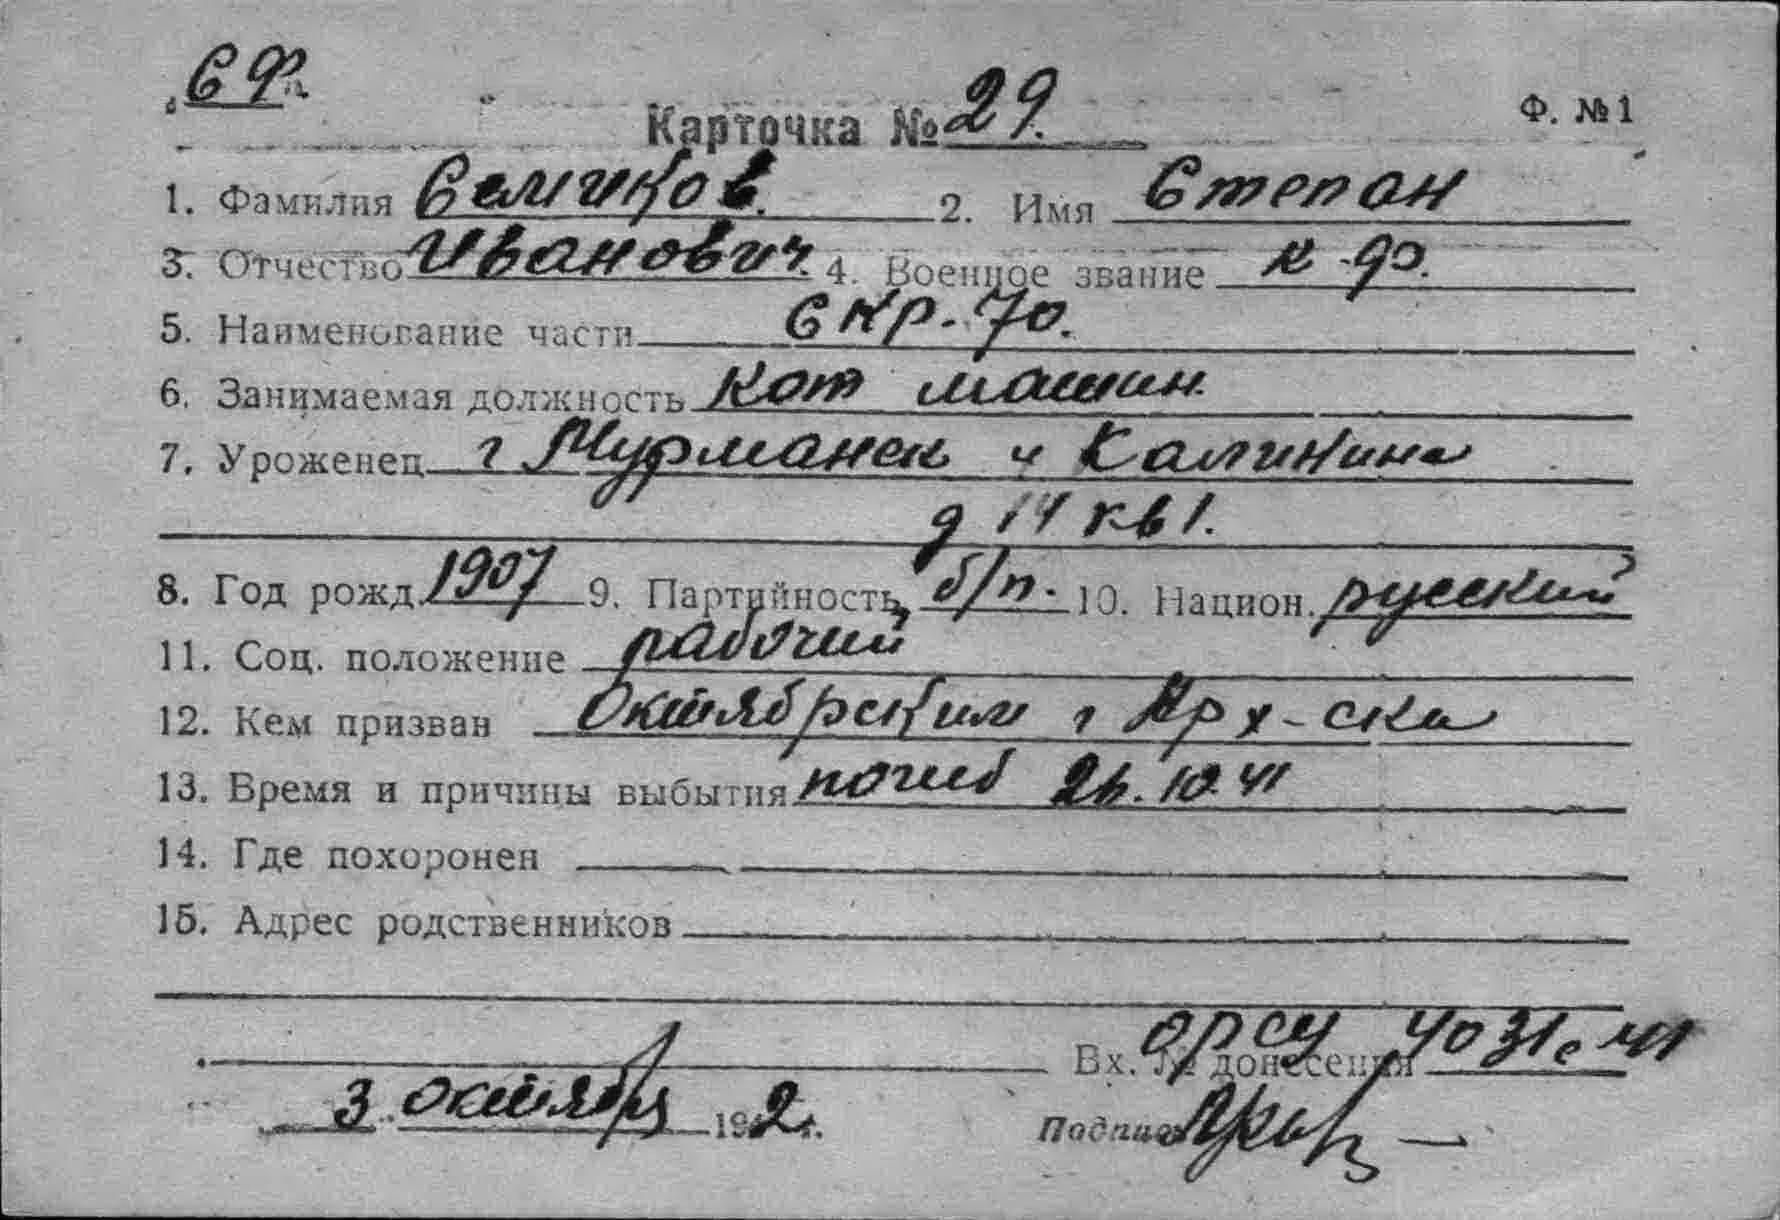 СФ.
Карточка № 29. Ф. № 1
1. Фамилия Семиков. 2. Имя Степан
3. Отчество Иванович. 4. Военное звание к-ф.
5. Наименование части СКР-70.
6. Занимаемая должность Кот машин.
7. Уроженец г Мурманск у Калинина
д 14 кв 1.
8. Год рожд. 1907 9. Партийность б/п. 10. Национ. русский
11. Соц. положение рабочий
12. Кем призван Октябрьским г Арх-ска
13. Время и причины выбытия погиб 26.10.41
14. Где похоронен
15. Адрес родственников
Вх. № донесения ОРСУ 4031с 41
3 октября 1942 г.
Подпись